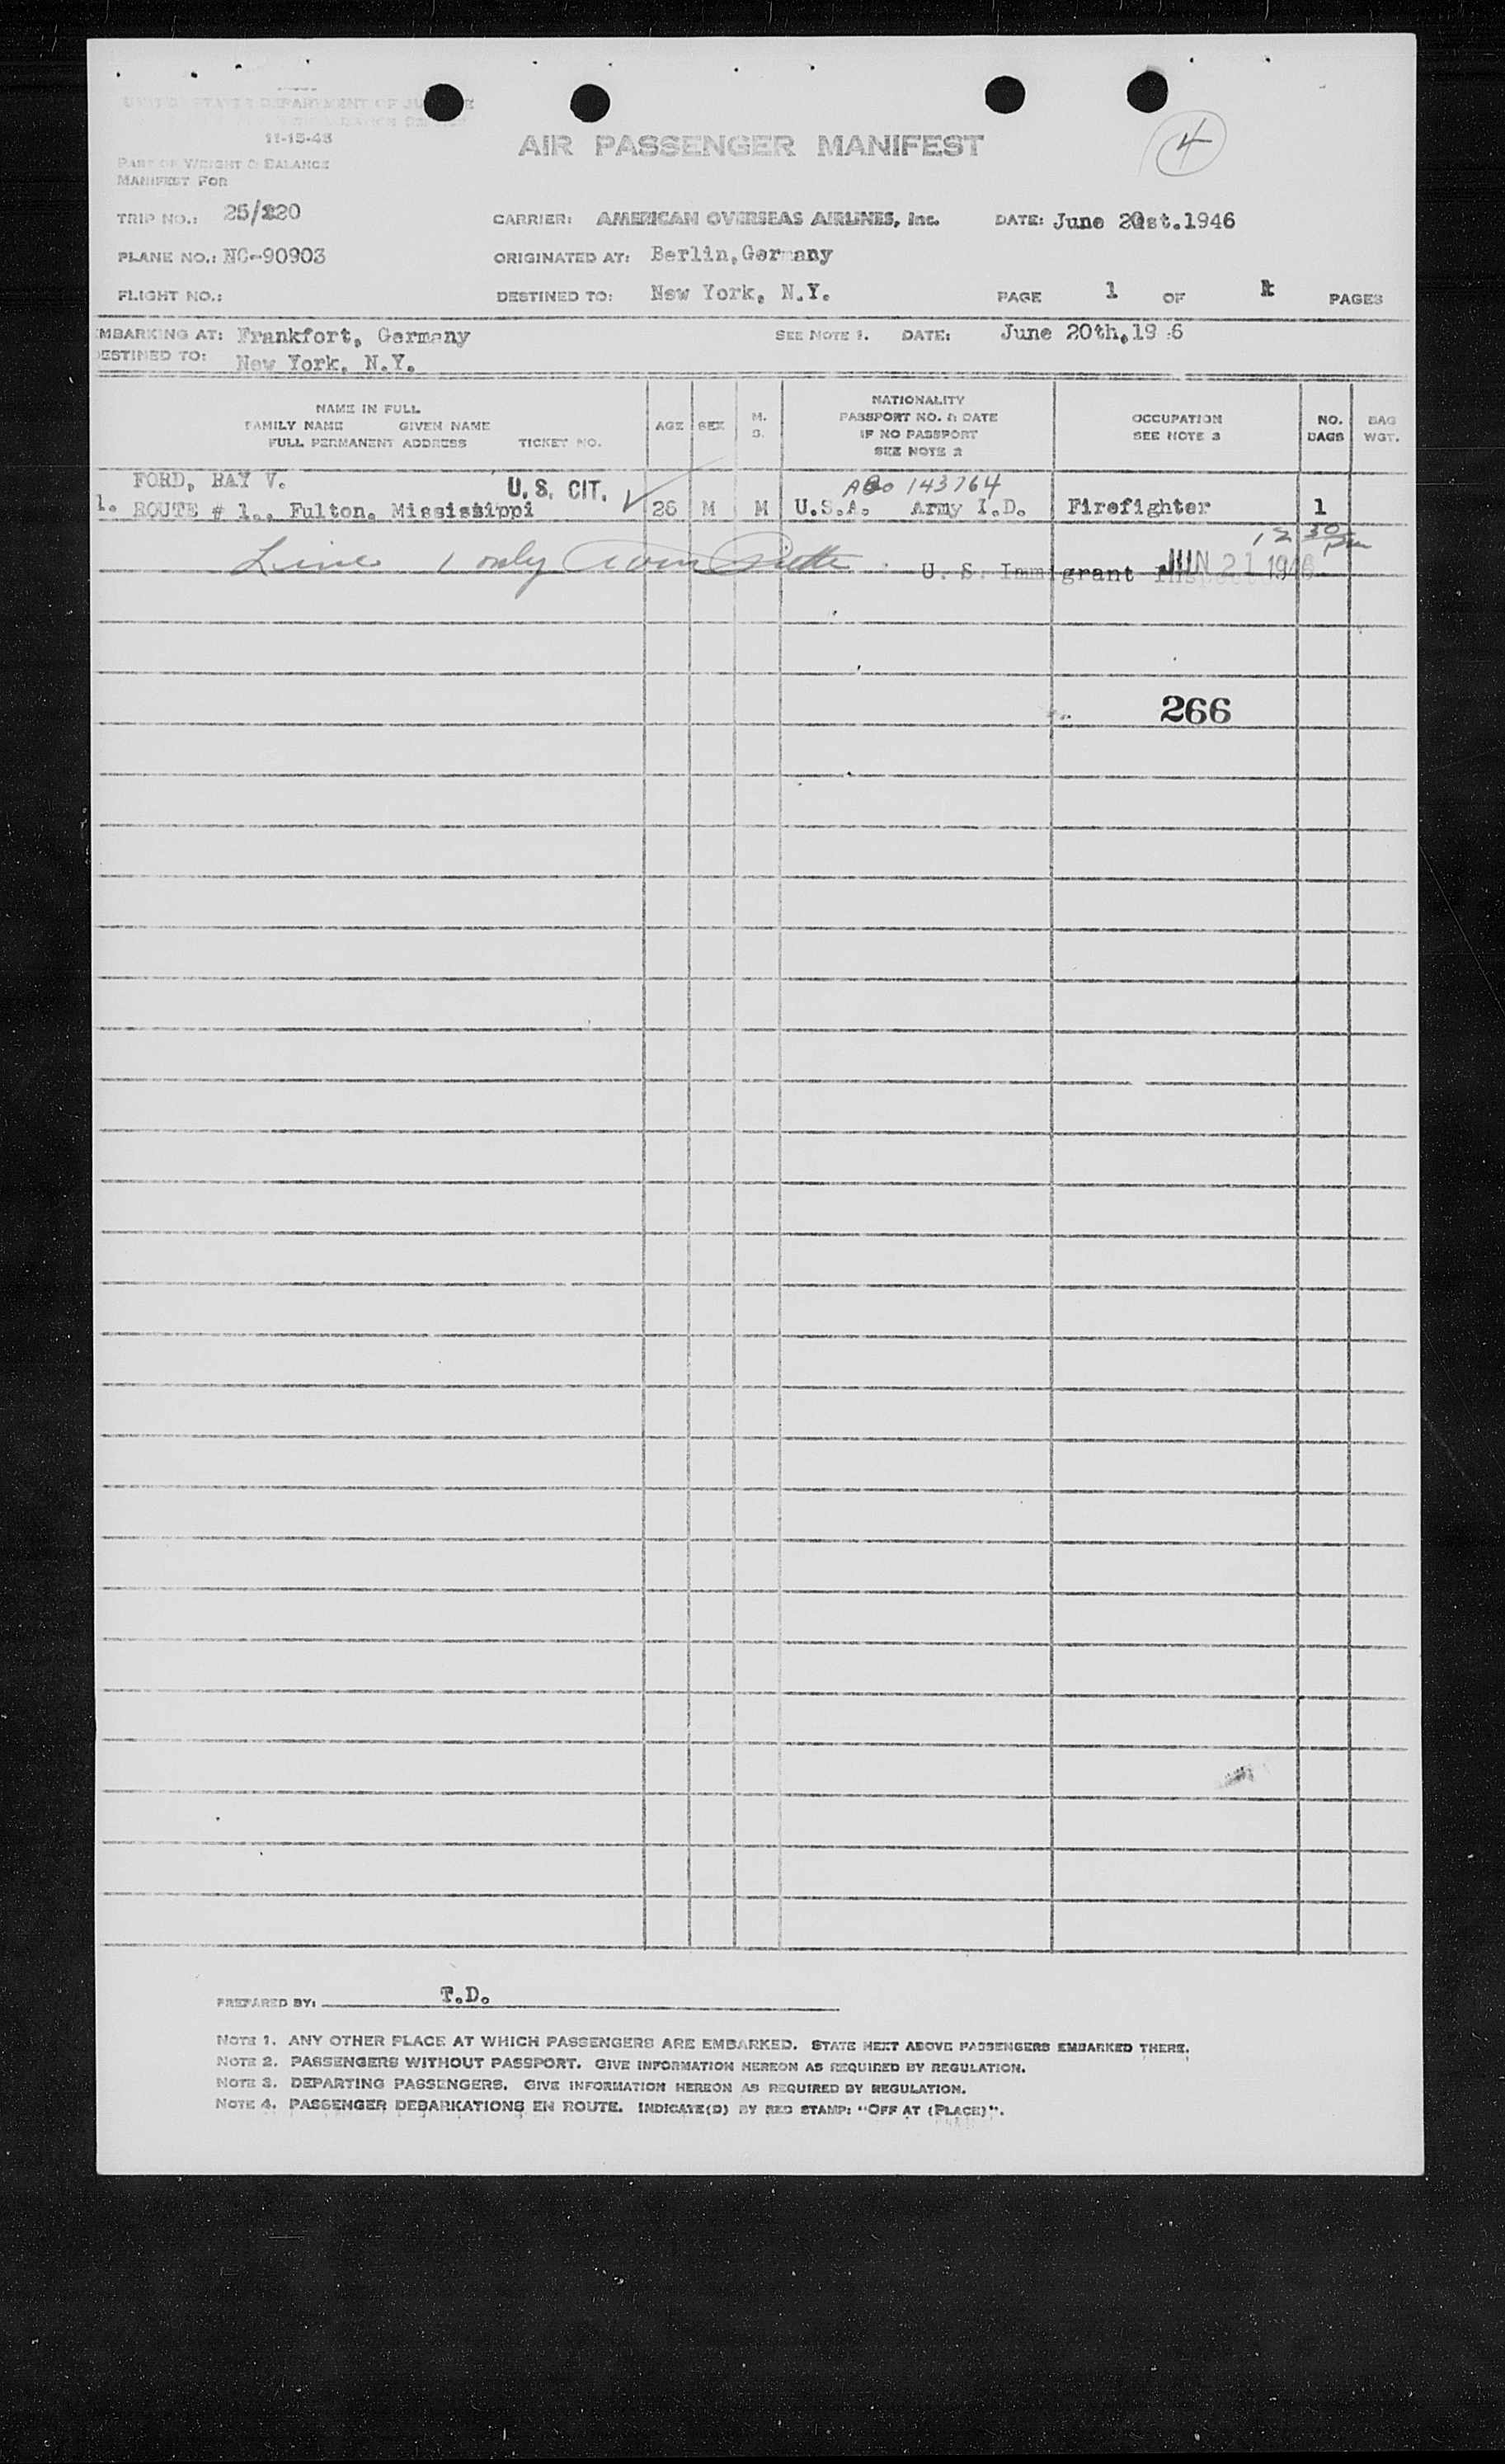 UNITED STATES DEPARTMENT OF JUSTICE
11-15-45
AIR PASSENGER MANIFEST
4
PART OF WEIGHT & BALANCE
MANIFEST FOR
TRIP NO.: 25/220 CARRIER: AMERICAN OVERSEAS AIRLINES, Inc. DATE: June 21st.1946
PLANE NO.: NC-90903 ORIGINATED AT: Berlin,Germany
FLIGHT NO.: DESTINED TO: New York, N.Y. PAGE 1 OF 1 PAGES
EMBARKING AT: Frankfort, Germany SEE NOTE 1. DATE: June 20th,19 6
DESTINED TO: New York, N.Y.
NAME IN FULL
FAMILY NAME GIVEN NAME
FULL PERMANENT ADDRESS TICKET NO.
AGE SEX M. S.
NATIONALITY
PASSPORT NO. & DATE
IF NO PASSPORT
SEE NOTE 2
OCCUPATION
SEE NOTE 3
NO. BAGS
BAG WGT.
FORD, RAY V. U. S. CIT. AGO 143764
1. ROUTE # 1., Fulton, Mississippi 26 M M U.S.A. Army I.D. Firefighter 1
12 30 pm
Line 1 only
U. S. Immigrant Inspector JUN 21 1946
266
PREPARED BY: T.D.
NOTE 1. ANY OTHER PLACE AT WHICH PASSENGERS ARE EMBARKED. STATE NEXT ABOVE PASSENGERS EMBARKED THERE.
NOTE 2. PASSENGERS WITHOUT PASSPORT. GIVE INFORMATION HEREON AS REQUIRED BY REGULATION.
NOTE 3. DEPARTING PASSENGERS. GIVE INFORMATION HEREON AS REQUIRED BY REGULATION.
NOTE 4. PASSENGER DEBARKATIONS EN ROUTE. INDICATE(D) BY RED STAMP: "OFF AT (PLACE)".